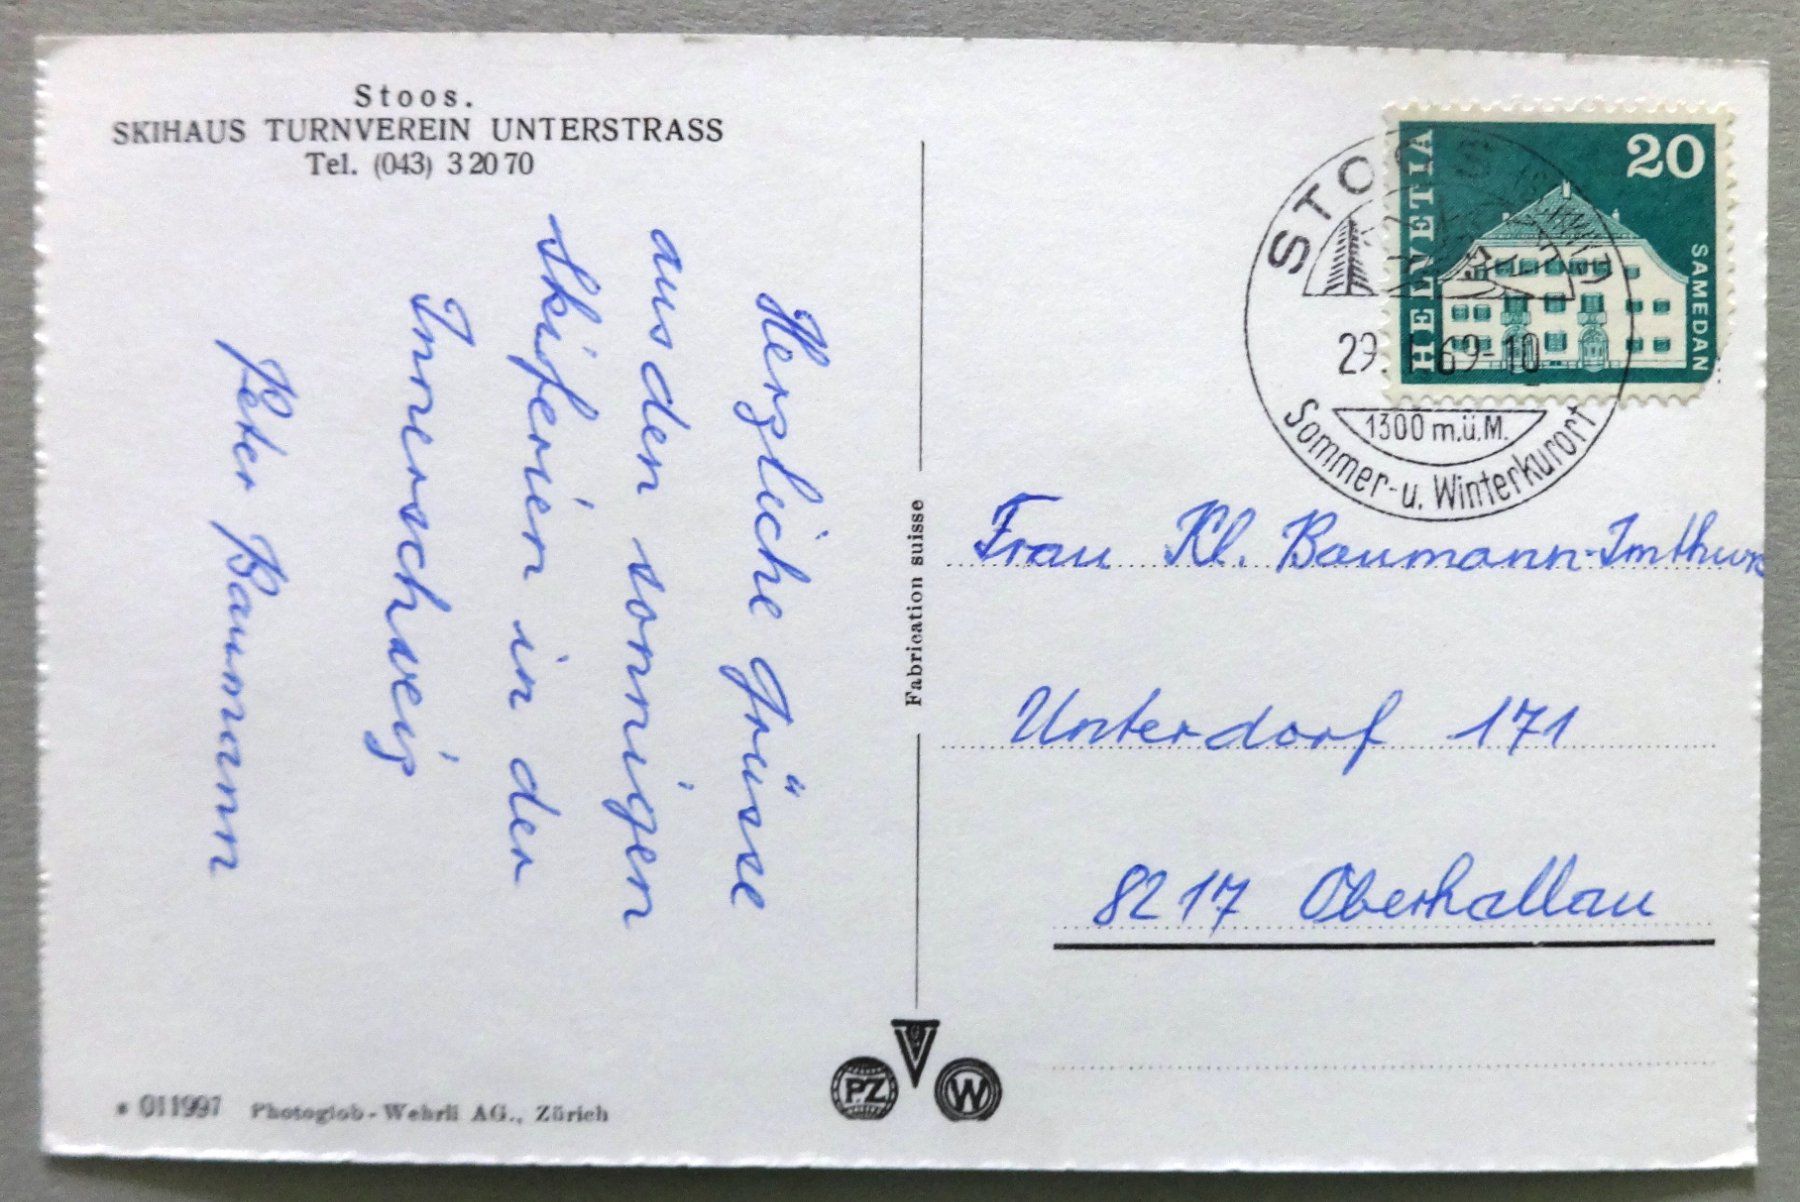 Stoos.
SKIHAUS TURNVEREIN UNTERSTRASS
Tel. (043) 3 20 70
Herzliche Grüsse
aus den sonnigen
Skiferien in der
Innerschweiz
Peter Baumann
* 011997 Photoglob-Wehrli AG., Zürich
Fabrication suisse
PZ
W
HELVETIA
20
SAMEDAN
STOOS
29. 69-10
1300 m.ü.M.
Sommer- u. Winterkurort
Frau Kl. Baumann-Imthurn
Unterdorf 171
8217 Oberhallau